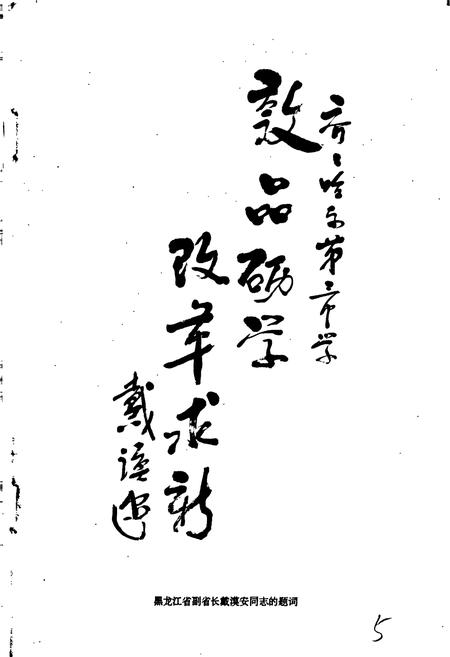 齐〻哈尔第二中学
敦品砺学
改革求新
戴谟安
黑龙江省副省长戴谟安同志的题词
5